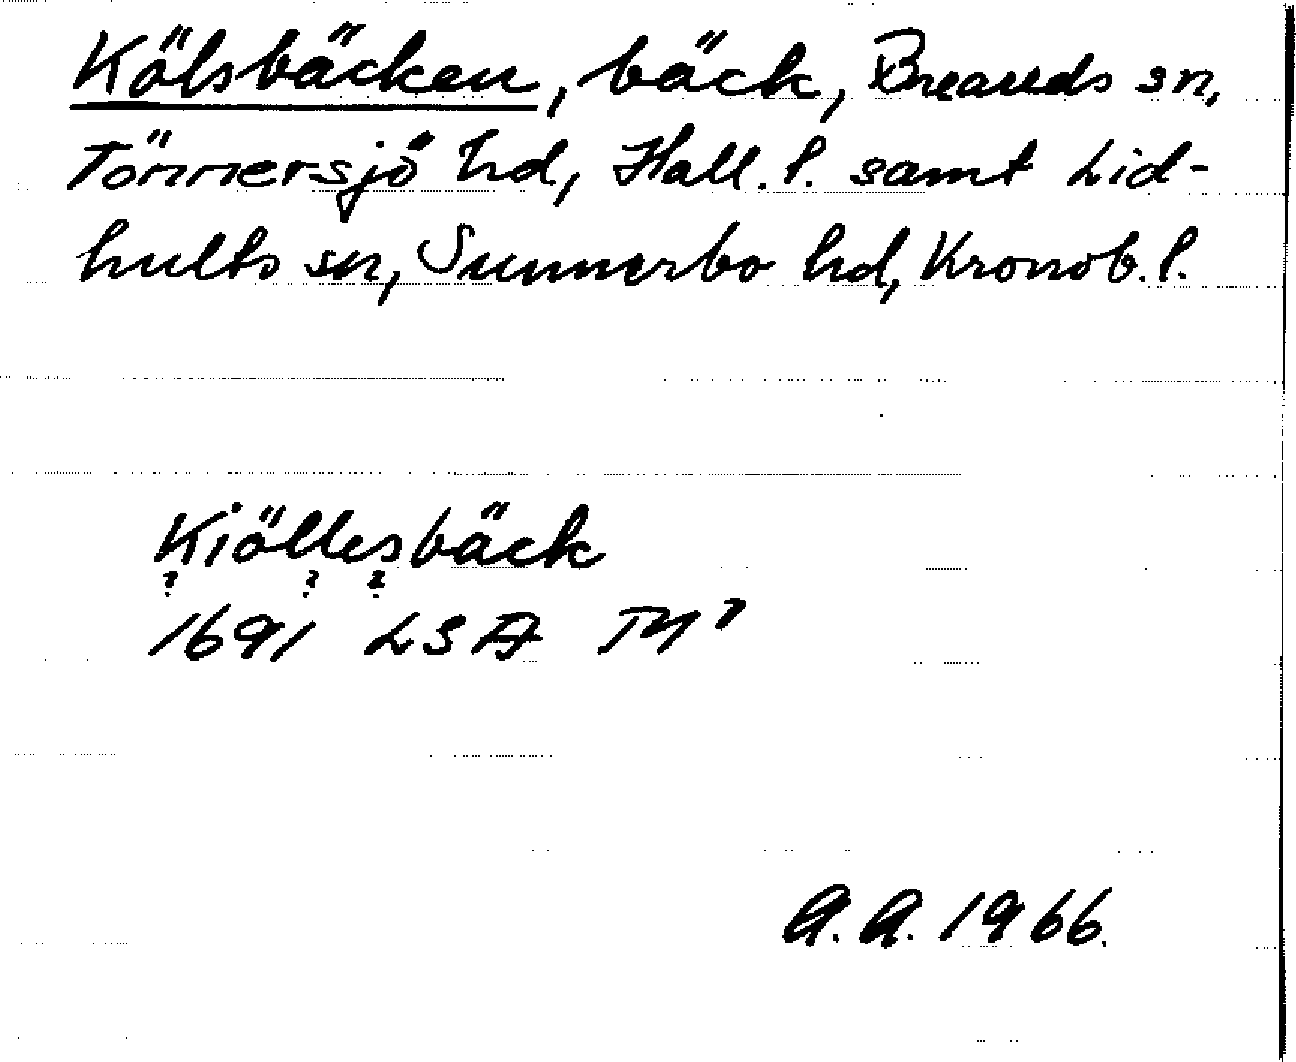 Kölsbäcken, bäck, Breareds sn,
Tönnersjö hd, Hall. l. samt Lid-
hults sn, Sunnerbo hd, Kronob. l.
Kiöllesbäck
? ? ?
1691 LSA M⁷
A.A. 1966.